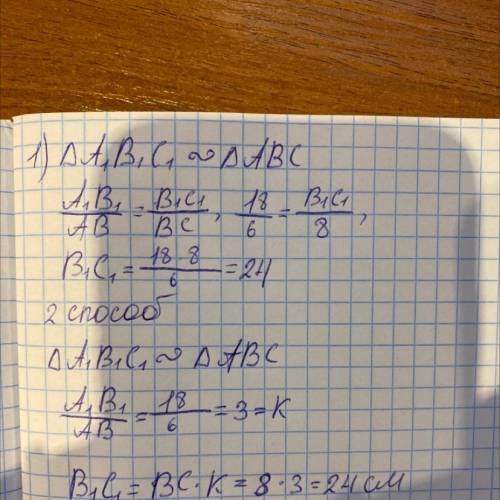 1) ΔA₁B₁C₁ ∾ ΔABC
A₁B₁/AB = B₁C₁/BC, 18/6 = B₁C₁/8,
B₁C₁ = 18·8/6 = 24
2 способ
ΔA₁B₁C₁ ∾ ΔABC
A₁B₁/AB = 18/6 = 3 = K
B₁C₁ = BC·K = 8·3 = 24 см